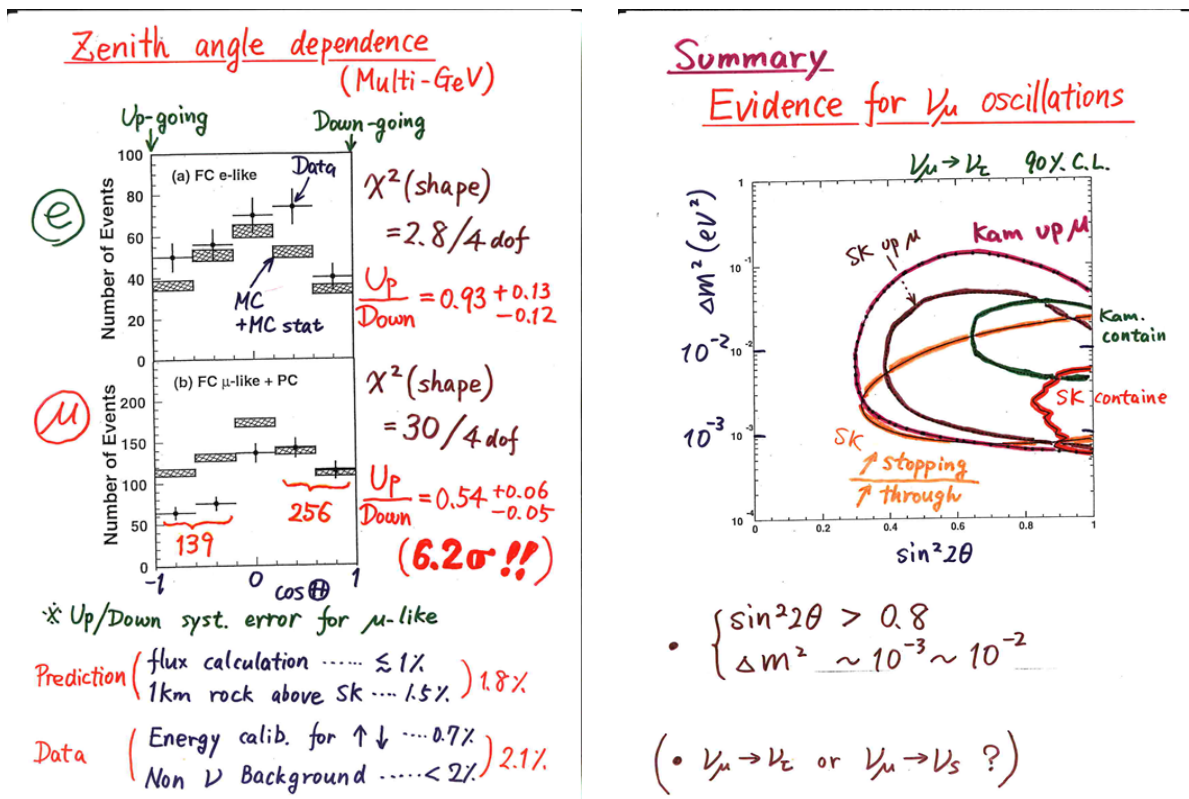 Zenith angle dependence
(Multi-GeV)
Up-going
Down-going
e
100
80
60
40
20
0
Number of Events
(a) FC e-like
Data
MC
+MC stat
χ² (shape)
= 2.8/4 dof
Up/Down = 0.93 +0.13 −0.12
μ
200
150
100
50
0
Number of Events
(b) FC μ-like + PC
139
256
χ² (shape)
= 30/4 dof
Up/Down = 0.54 +0.06 −0.05
(6.2σ!!)
-1 0 1
cos Θ
※ Up/Down syst. error for μ-like
Prediction ( flux calculation ...... ≲ 1%
1km rock above SK .... 1.5% ) 1.8%
Data ( Energy calib. for ↑↓ .... 0.7%
Non ν Background ..... < 2% ) 2.1%
Summary
Evidence for νμ oscillations
νμ → ντ 90% C.L.
Δm² (eV²)
1
10⁻¹
10⁻² 10⁻²
10⁻³ 10⁻³
10⁻⁴
Kam up μ
SK up μ
Kam.
contain
SK containe
SK
↑ stopping
↑ through
0 0.2 0.4 0.6 0.8 1
sin²2θ
• { sin²2θ > 0.8
Δm² ~ 10⁻³ ~ 10⁻²
(• νμ → ντ or νμ → νs ?)